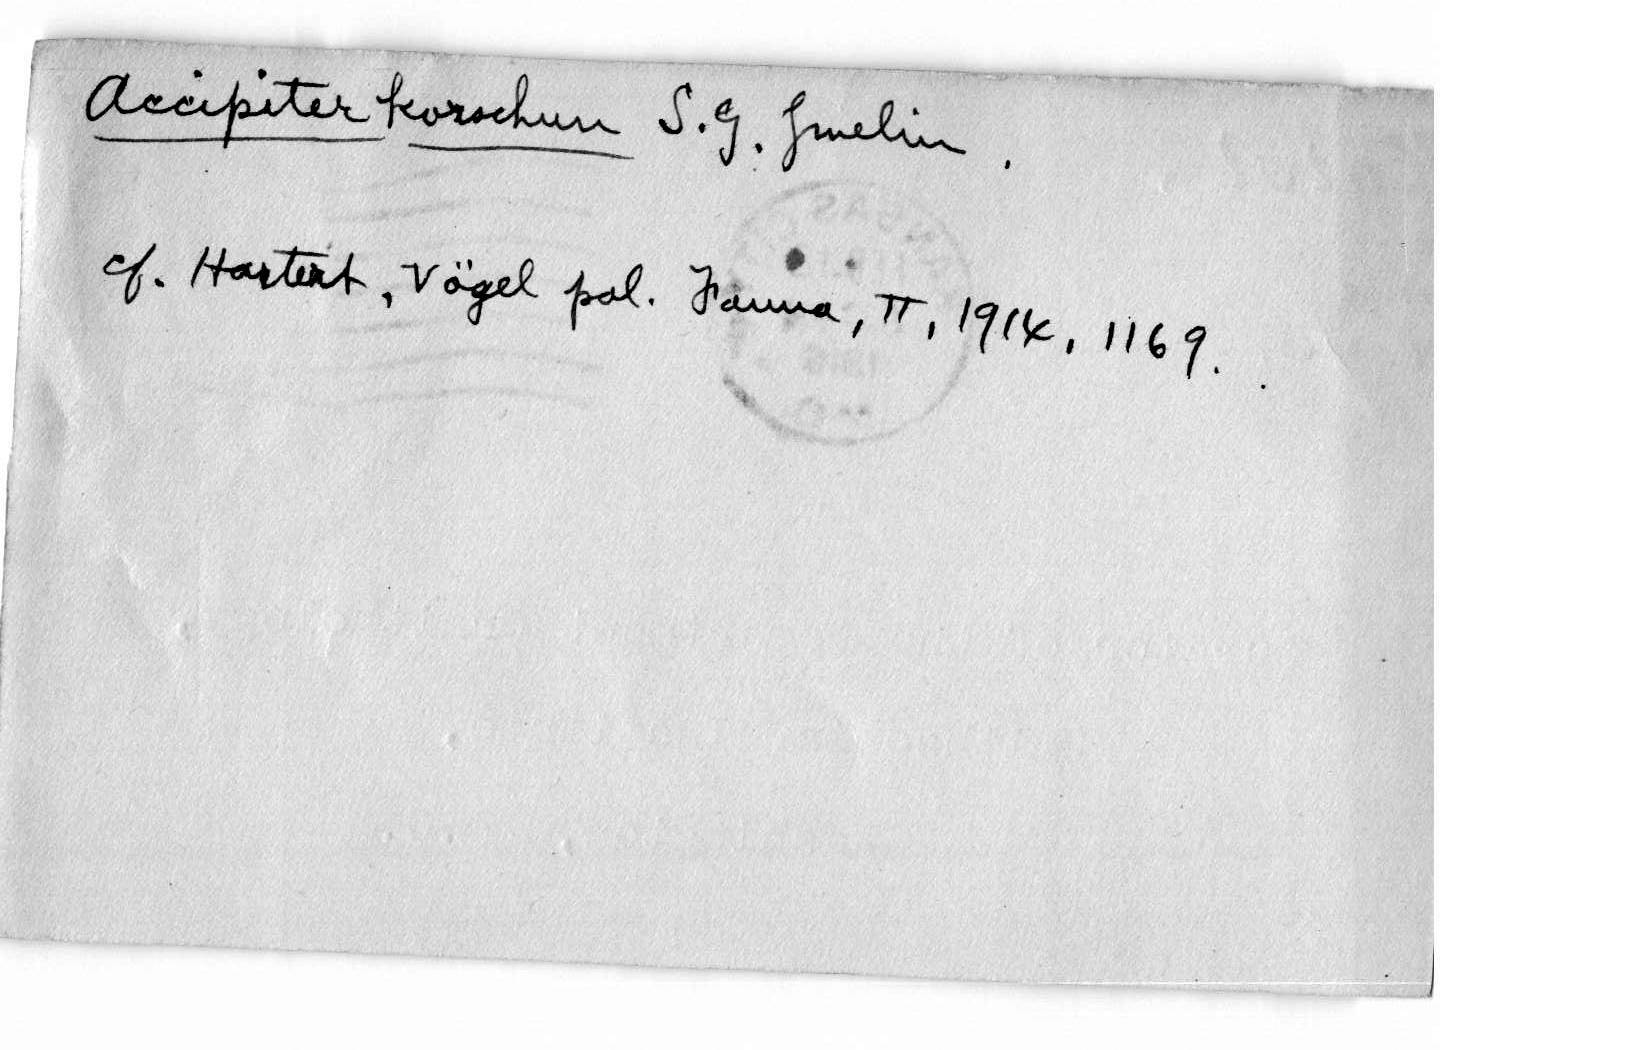 Accipiter korschun S.G. Gmelin.
cf. Hartert, Vögel pal. Fauna, II, 1914, 1169.